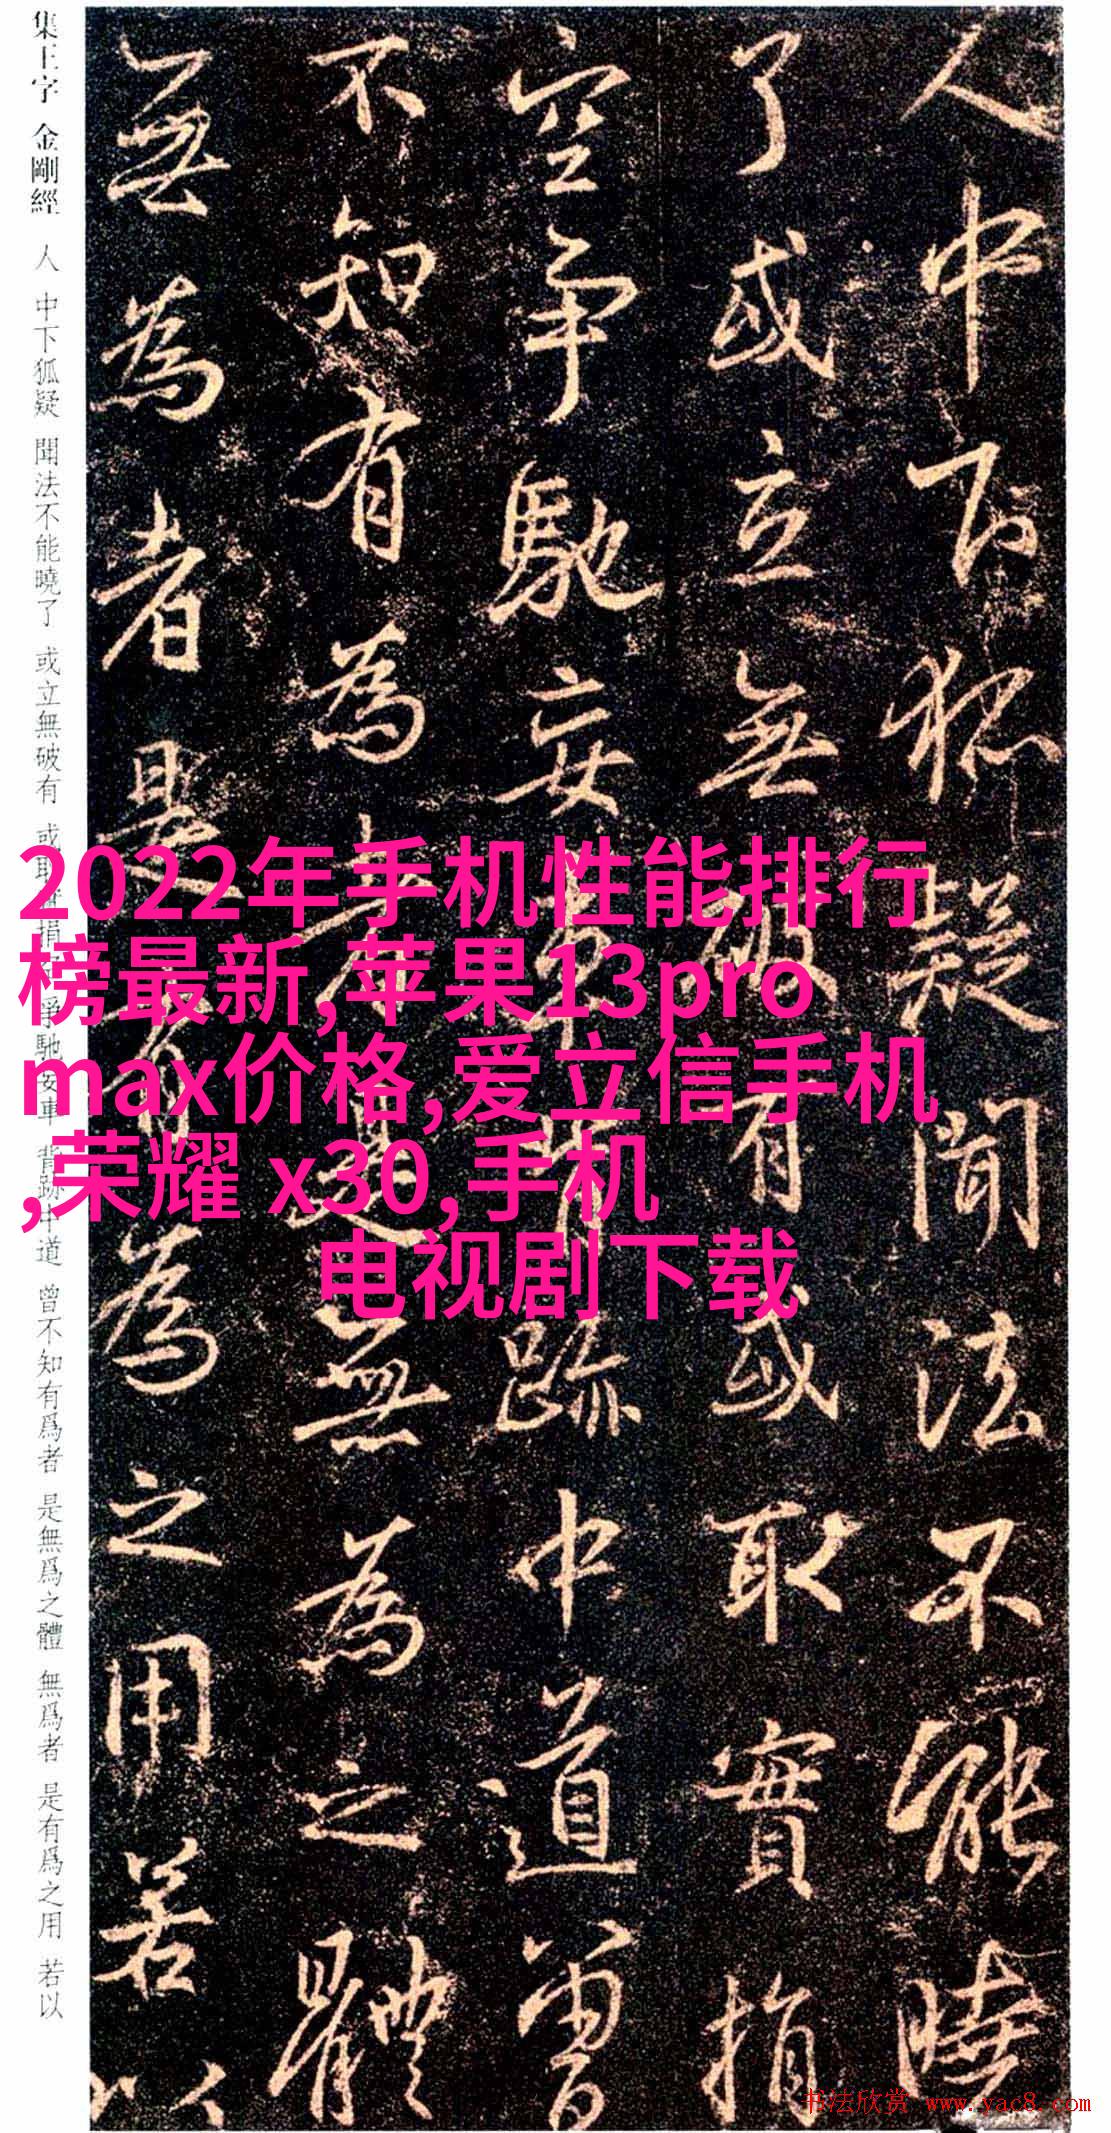 人中下狐疑聞法不能曉
了或立無破有或取實捐
空爭馳妄車背跡中道曾
不知有為者是無為之體
無為者是有為之用若以
集王字 金剛經 人 中下狐疑 聞法不能曉了 或立無破有 或取實捐空 爭馳妄車 背跡中道 曾不知有爲者 是無爲之體 無爲者 是有爲之用 若以
2022年手机性能排行
榜最新,苹果13pro
max价格,爱立信手机
,荣耀 x30,手机
电视剧下载
书法欣赏 www.yac8.com